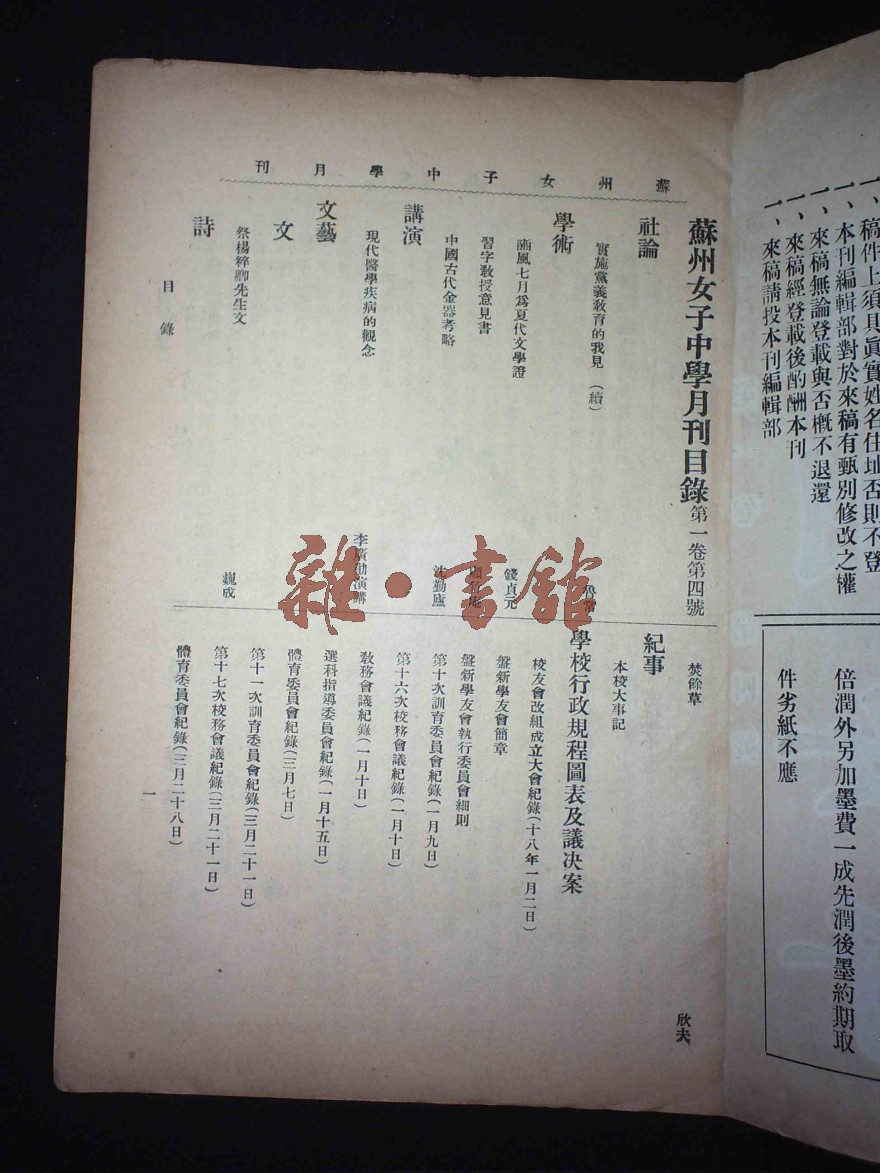 一、稿件上須具眞實姓名住址否則不登
一、本刊編輯部對於來稿有甄別修改之權
一、來稿無論登載與否槪不退還
一、來稿經登載後酌酬本刊
一、來稿請投本刊編輯部
倍潤外另加墨費一成先潤後墨約期取
件劣紙不應
蘇州女子中學月刊
蘇州女子中學月刊目錄 第一卷第四號
社論
實施黨義敎育的我見(續)
學術
豳風七月爲夏代文學證 錢貞元
習字敎授意見書
中國古代金器考略 沈勤廬
講演
現代醫學疾病的觀念 李廣勛演講
文藝
文
祭楊粹卿先生文 巍成
詩
焚餘草 欣夫
紀事
本校大事記
學校行政規程圖表及議決案
校友會改組成立大會紀錄(十八年一月二日)
盤新學友會簡章
盤新學友會執行委員會細則
第十次訓育委員會紀錄(一月九日)
第十六次校務會議紀錄(一月十日)
敎務會議紀錄(一月十日)
選科指導委員會紀錄(一月十五日)
體育委員會紀錄(三月七日)
第十一次訓育委員會紀錄(三月二十一日)
第十七次校務會議紀錄(三月二十一日)
體育委員會紀錄(三月二十八日)
目錄
一
雜·書館